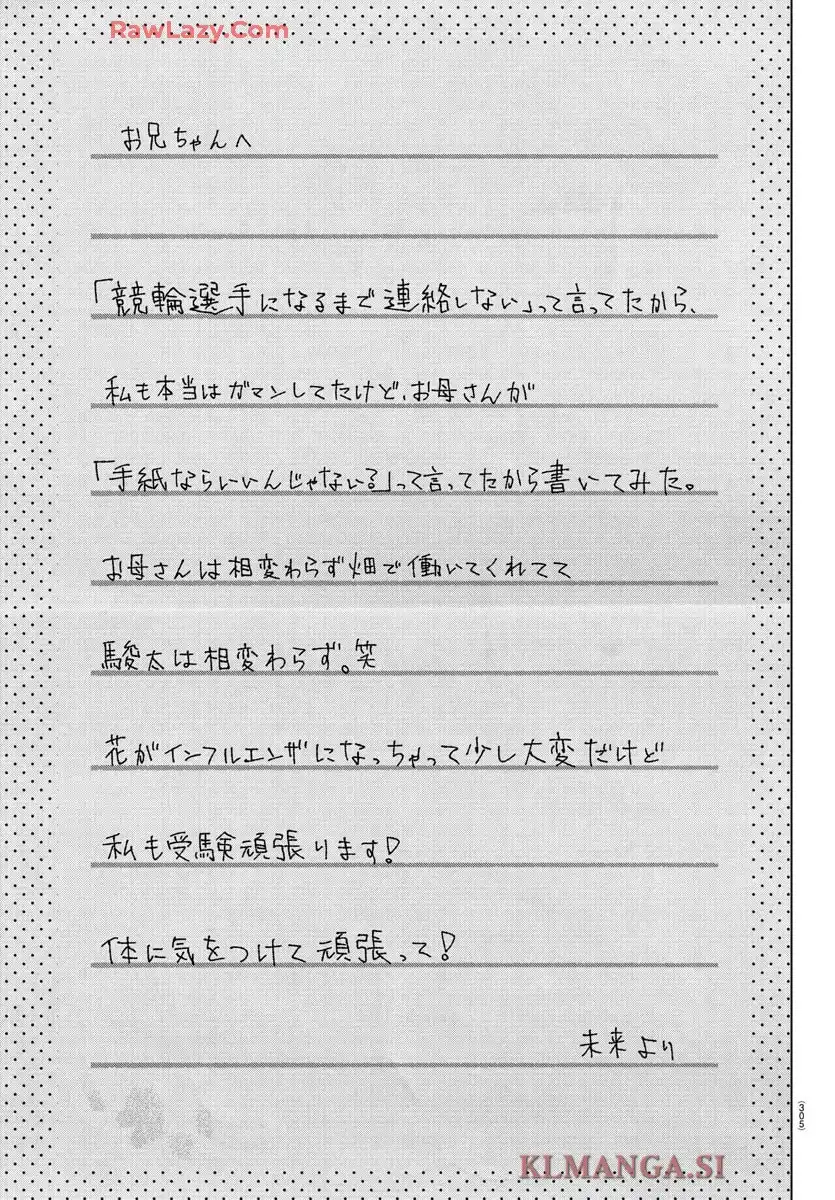 RawLazy.Com
お兄ちゃんへ
「競輪選手になるまで連絡しない」って言ってたから、
私も本当はガマンしてたけど、お母さんが
「手紙ならいいんじゃないる」って言ってたから書いてみた。
お母さんは相変わらず畑で働いてくれてて
駿太は相変わらず。笑
花がインフルエンザになっちゃって少し大変だけど
私も受験頑張ります!
体に気をつけて頑張って!
未来より
(305)
KLMANGA.SI